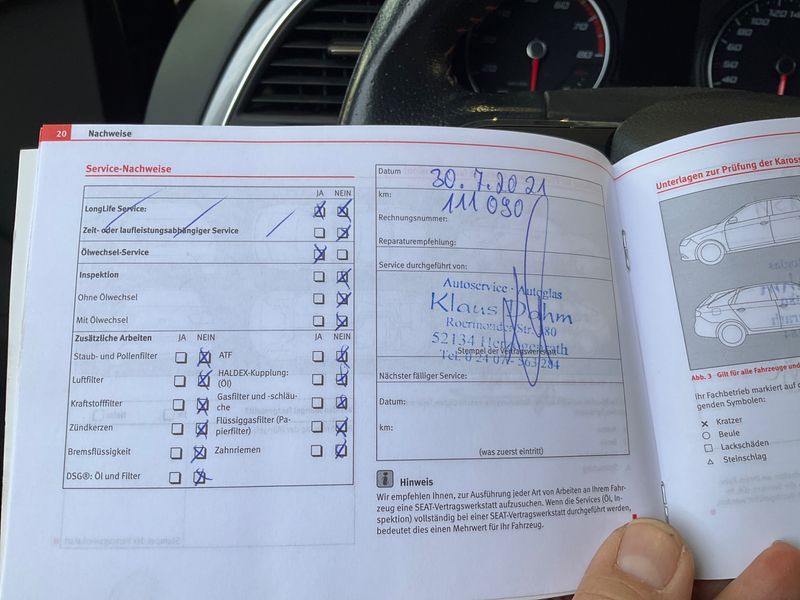 20 Nachweise
Service-Nachweise
JA NEIN
LongLife Service:
Zeit- oder laufleistungsabhängiger Service
Ölwechsel-Service
Inspektion
Ohne Ölwechsel
Mit Ölwechsel
Zusätzliche Arbeiten JA NEIN JA NEIN
Staub- und Pollenfilter ATF
Luftfilter HALDEX-Kupplung:
(Öl)
Kraftstofffilter Gasfilter und -schläu-
che
Zündkerzen Flüssiggasfilter (Pa-
pierfilter)
Bremsflüssigkeit Zahnriemen
DSG®: Öl und Filter
Datum 30.7.2021
km: 111 090
Rechnungsnummer:
Reparaturempfehlung:
Service durchgeführt von:
Autoservice · Autoglas
Klaus Dahm
Roermonder Str. 80
52134 Herzogenrath
Stempel der Vertragswerkstatt
Tel. 0 24 07 - 563 284
Nächster fälliger Service:
Datum:
km:
(was zuerst eintritt)
Hinweis
Wir empfehlen Ihnen, zur Ausführung jeder Art von Arbeiten an Ihrem Fahr-
zeug eine SEAT-Vertragswerkstatt aufzusuchen. Wenn die Services (Öl, In-
spektion) vollständig bei einer SEAT-Vertragswerkstatt durchgeführt werden,
bedeutet dies einen Mehrwert für Ihr Fahrzeug.
Unterlagen zur Prüfung der Kaross
Abb. 3 Gilt für alle Fahrzeuge und
Ihr Fachbetrieb markiert auf
genden Symbolen:
Kratzer
Beule
Lackschäden
Steinschlag
60
70
80
40
60
80
100
120